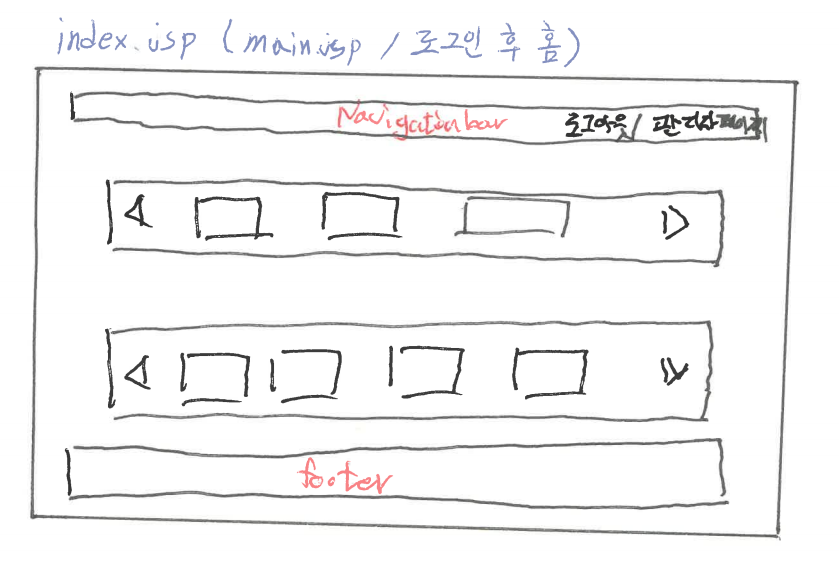 index.jsp (main.jsp / 로그인 후 홈)
Navigation bar 로그아웃 / 판매자페이지
footer